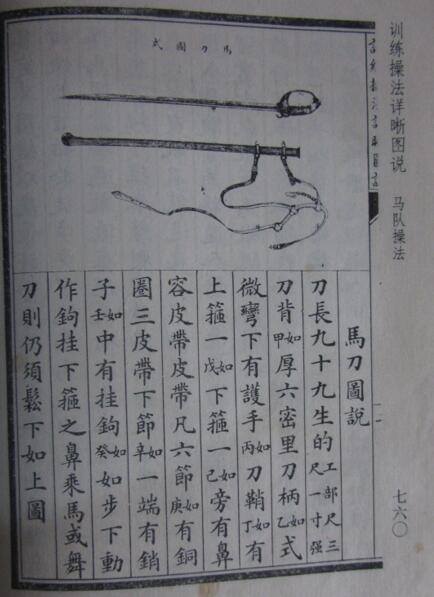 训练操法详晰图说 马队操法
七六〇
馬刀圖式
馬刀圖說
刀長九十九生的工部尺三尺一寸强
刀背如甲厚六密里刀柄如乙式
微彎下有護手如丙刀鞘如丁有
上箍一如戊下箍一如己旁有鼻
容皮帶皮帶凡六節如庚有銅
圈三皮帶下節如辛一端有銷
子如壬中有挂鉤如癸如步下動
作鉤挂下箍之鼻乘馬或舞
刀則仍須鬆下如上圖